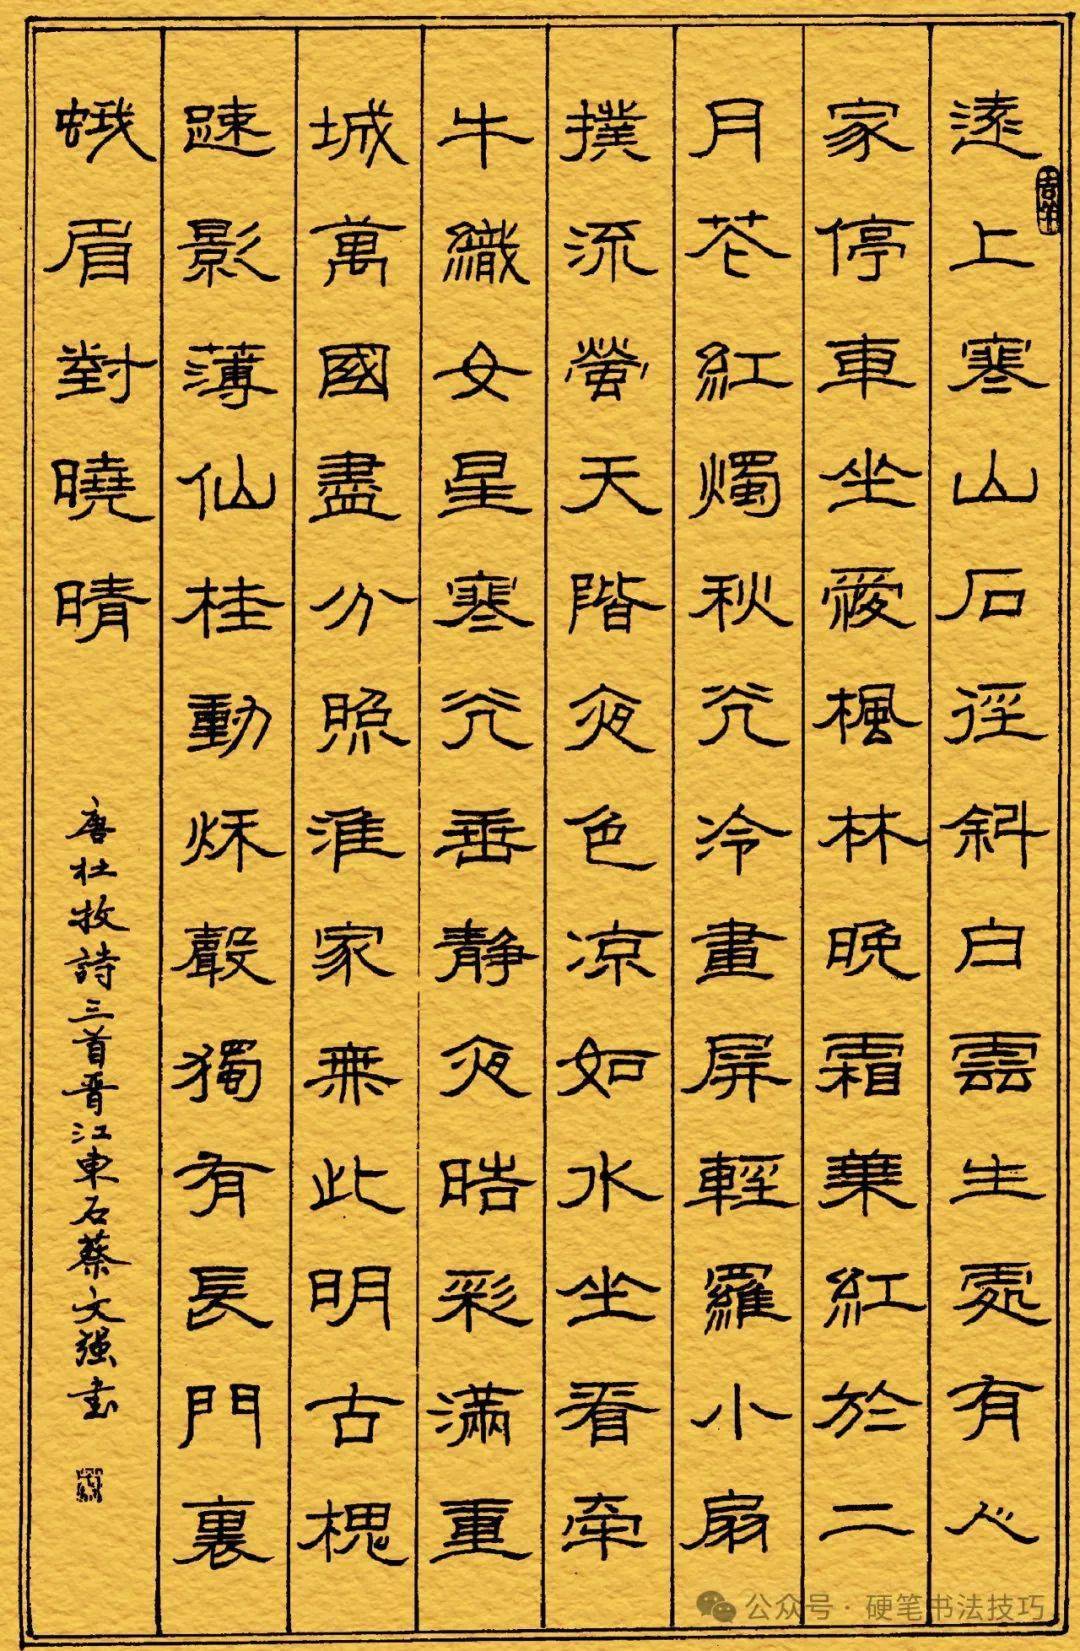 遠上寒山石徑斜白雲生處有人
家停車坐愛楓林晚霜葉紅於二
月花紅燭秋光冷畫屏輕羅小扇
撲流螢天階夜色凉如水坐看牽
牛織女星寒光垂靜夜晧彩滿重
城萬國盡分照淮家無此明古槐
踈影薄仙桂動秋聲獨有長門裏
蛾眉對曉晴
唐杜牧詩三首晋江東石蔡文强书
公众号 · 硬笔书法技巧